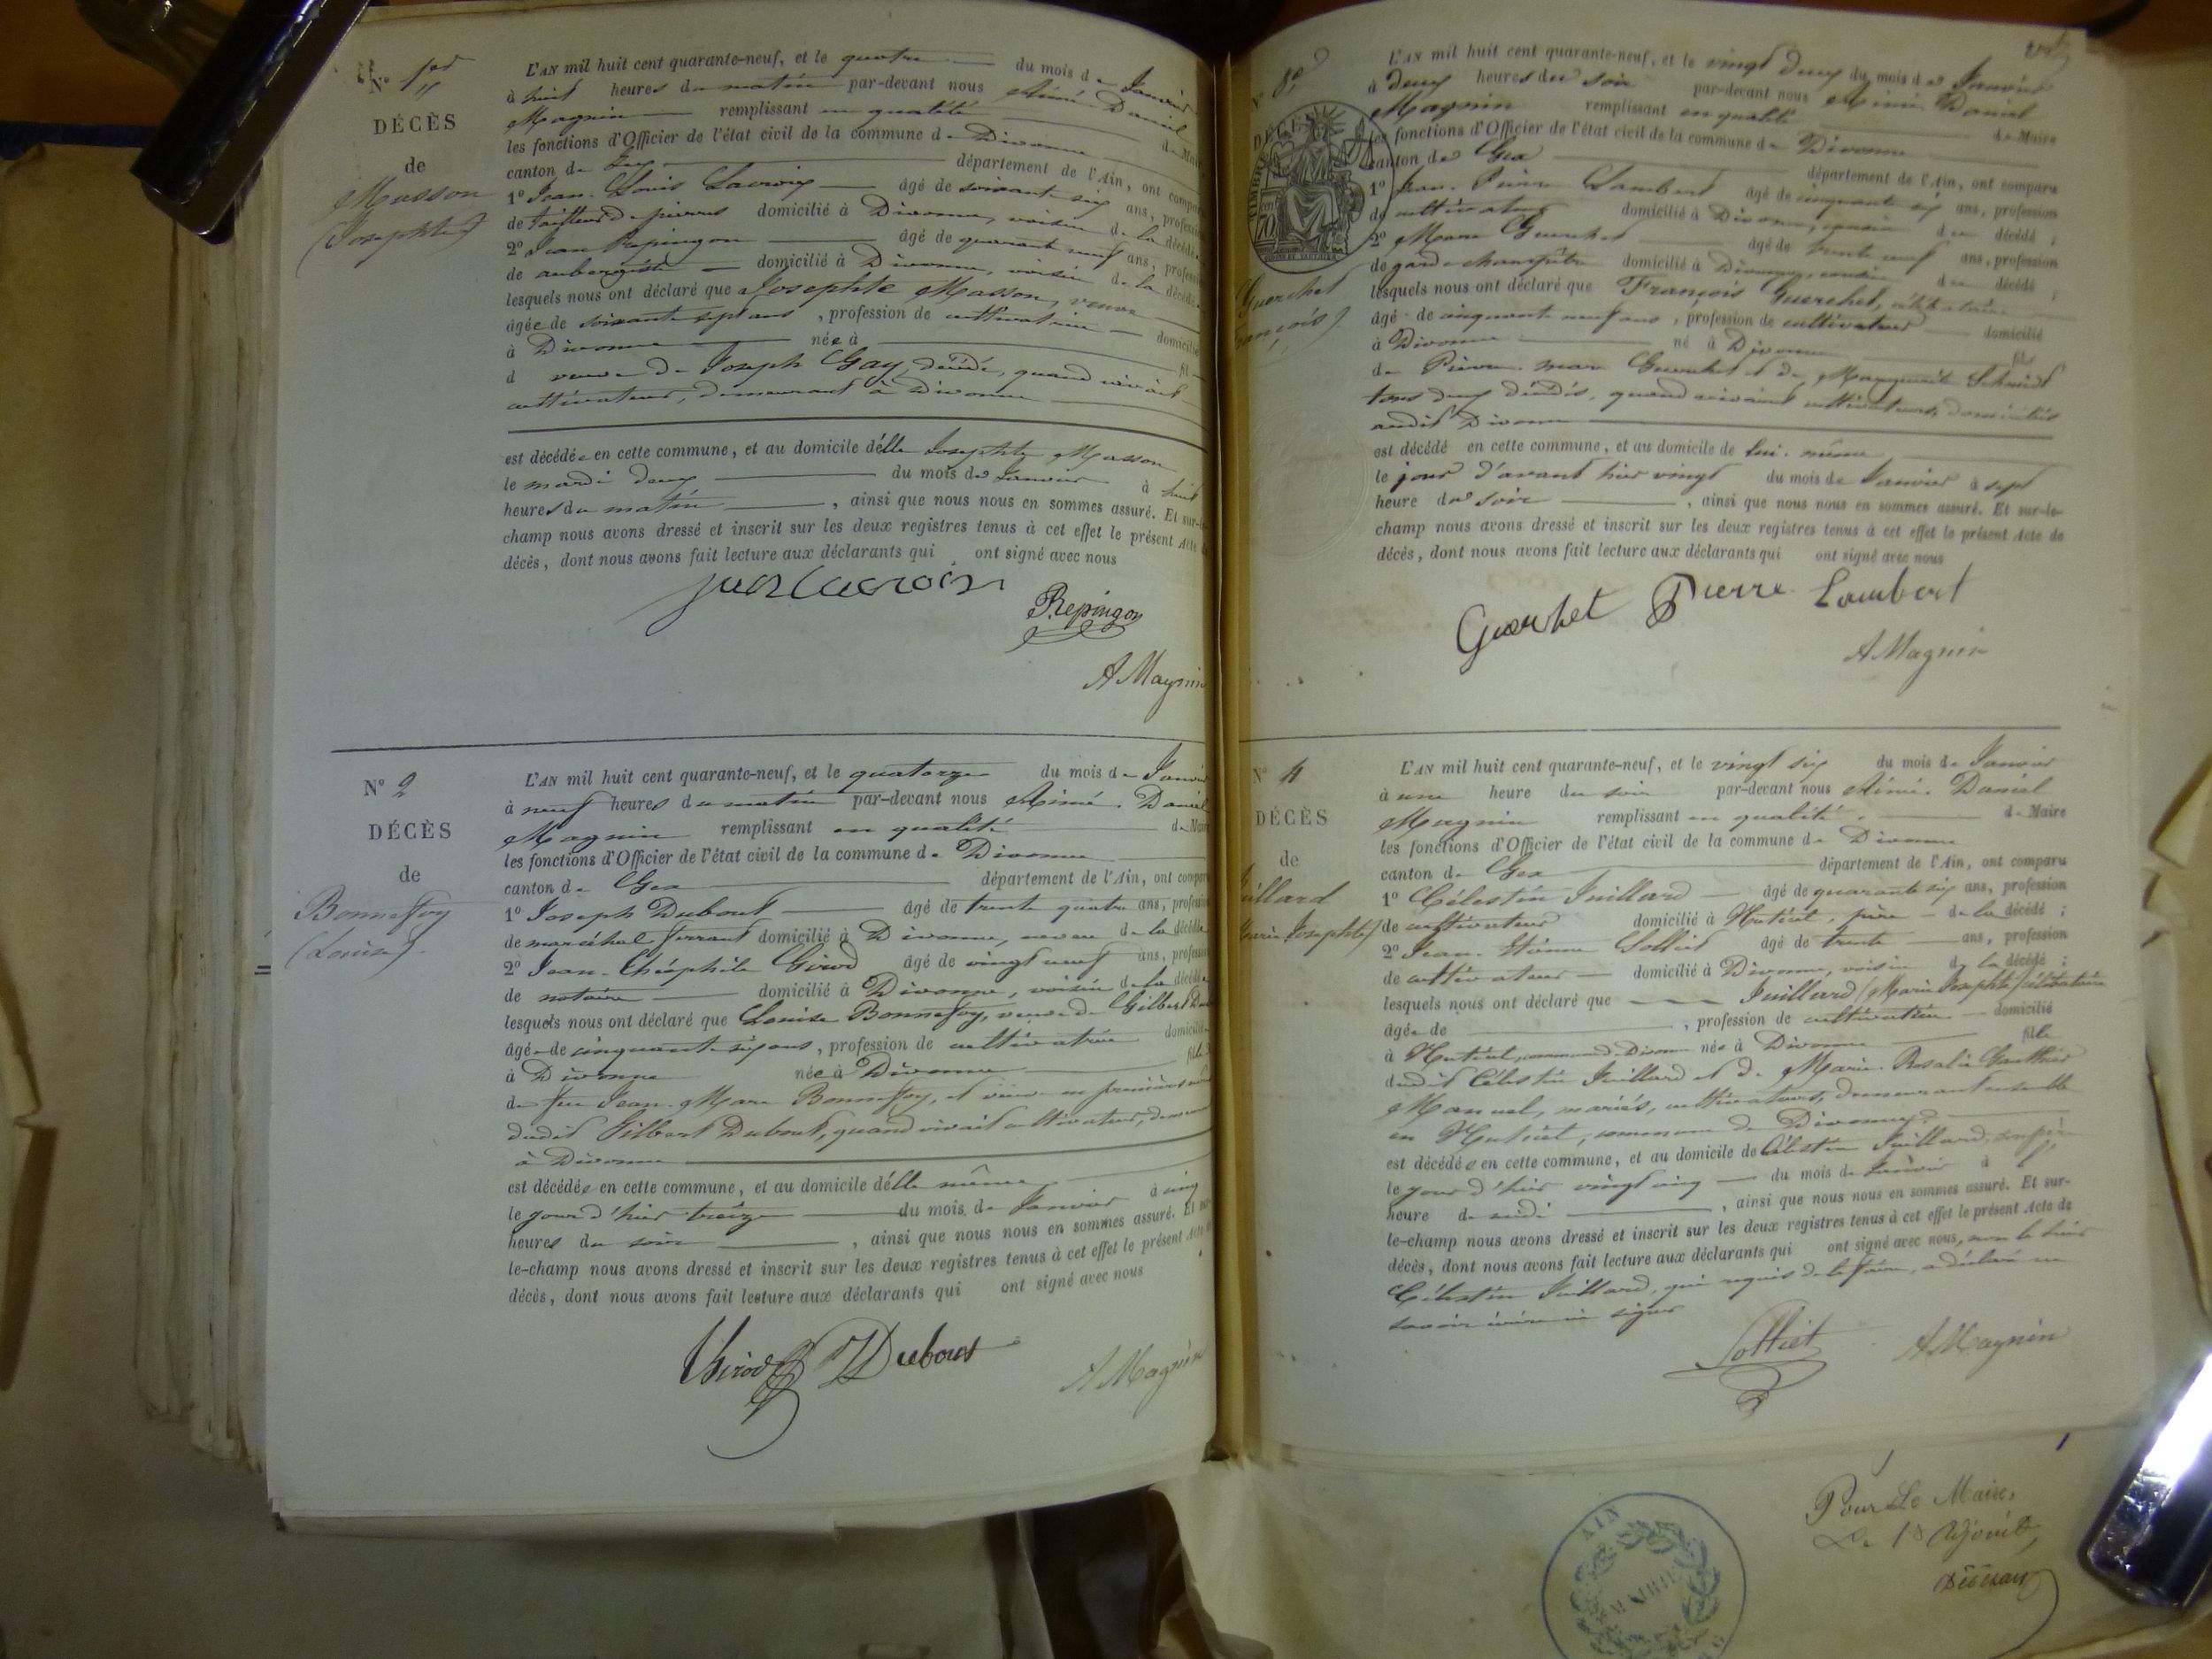 N° 1er
DÉCÈS
de
Masson
(Josephte)
L'AN mil huit cent quarante-neuf, et le quatre du mois de Janvier
à huit heures du matin par-devant nous Aimé Daniel
Magnin remplissant en qualité de Maire
les fonctions d'Officier de l'état civil de la commune de Divonne
canton de Gex département de l'Ain, ont comparu
1° Jean-Louis Lacroix âgé de soixante six ans, profession
de tailleur de pierres domicilié à Divonne, voisin de la décédée
2° Jean Repingon âgé de quarante neuf ans, profession
de aubergiste domicilié à Divonne, voisin de la décédée
lesquels nous ont déclaré que Josephte Masson, veuve
âgée de soixante sept ans, profession de cultivatrice domicilié
à Divonne née à fil
d veuve de Joseph Gay, décédé, quand vivait
cultivateur, demeurant à Divonne
est décédée en cette commune, et au domicile d'elle Josephte Masson
le mardi deux du mois de Janvier à huit
heures du matin, ainsi que nous nous en sommes assuré. Et sur-le-
champ nous avons dressé et inscrit sur les deux registres tenus à cet effet le présent Acte de
décès, dont nous avons fait lecture aux déclarants qui ont signé avec nous
Jean Lacroix
Repingon
A Magnin
N° 2
DÉCÈS
de
Bonnefoy
(Louise)
L'AN mil huit cent quarante-neuf, et le quatorze du mois de Janvier
à neuf heures du matin par-devant nous Aimé Daniel
Magnin remplissant en qualité de Maire
les fonctions d'Officier de l'état civil de la commune de Divonne
canton de Gex département de l'Ain, ont comparu
1° Joseph Dubout âgé de trente quatre ans, profession
de maréchal ferrant domicilié à Divonne, neveu de la décédée
2° Jean-Théophile Girod âgé de vingt neuf ans, profession
de notaire domicilié à Divonne, voisin de la décédée
lesquels nous ont déclaré que Louise Bonnefoy, veuve de Gilbert
âgée de cinquante six ans, profession de cultivatrice domicilié
à Divonne née à Divonne fille
de feu Jean-Marc Bonnefoy, et veuve en premières
dudit Gilbert Dubout, quand vivait cultivateur,
à Divonne
est décédée en cette commune, et au domicile d'elle même
le jour d'hier treize du mois de Janvier à cinq
heures du soir, ainsi que nous nous en sommes assuré. Et sur-
le-champ nous avons dressé et inscrit sur les deux registres tenus à cet effet le présent Acte de
décès, dont nous avons fait lecture aux déclarants qui ont signé avec nous
Girod Dubout
A Magnin
N° 3
Guerchet
L'AN mil huit cent quarante-neuf, et le vingt deux du mois de Janvier
à deux heures du soir par-devant nous Aimé Daniel
Magnin remplissant en qualité de Maire
les fonctions d'Officier de l'état civil de la commune de Divonne
canton de Gex département de l'Ain, ont comparu
1° Jean-Pierre Lambert âgé de cinquante six ans, profession
de cultivateur domicilié à Divonne, du décédé;
2° Marc Guerchet âgé de trente neuf ans, profession
de garde champêtre domicilié à Divonne, cousin du décédé;
lesquels nous ont déclaré que François Guerchet, célibataire
âgé de cinquante neuf ans, profession de cultivateur domicilié
à Divonne né à Divonne fils
de Pierre-Marc Guerchet et de Marguerite
tous deux décédés, quand vivaient cultivateurs, domiciliés
audit Divonne
est décédé en cette commune, et au domicile de lui-même
le jour d'avant hier vingt du mois de Janvier à sept
heure du soir, ainsi que nous nous en sommes assuré. Et sur-le-
champ nous avons dressé et inscrit sur les deux registres tenus à cet effet le présent Acte de
décès, dont nous avons fait lecture aux déclarants qui ont signé avec nous
Guerchet Pierre Lambert
A Magnin
N° 4
DÉCÈS
de
Juillard
Marie Josephte)
L'AN mil huit cent quarante-neuf, et le vingt six du mois de Janvier
à une heure du soir par-devant nous Aimé-Daniel
Magnin remplissant en qualité de Maire
les fonctions d'Officier de l'état civil de la commune de Divonne
canton de Gex département de l'Ain, ont comparu
1° Célestin Juillard âgé de quarante six ans, profession
de cultivateur domicilié à père de la décédé;
2° Jean-Etienne Solliet âgé de trente ans, profession
de cultivateur domicilié à Divonne, voisin de la décédé;
lesquels nous ont déclaré que Juillard (Marie Josephte) célibataire
âgée de, profession de cultivatrice domicilié
à commune Divonne née à Divonne fille
dudit Célestin Juillard et de Marie-Rosalie Gauthier
Manuel, mariés, cultivateurs, demeurant ensemble
en commune de Divonne
est décédée en cette commune, et au domicile de Célestin Juillard, son père
le jour d'hier vingt cinq du mois de Janvier à l'
heure de midi, ainsi que nous nous en sommes assuré. Et sur-
le-champ nous avons dressé et inscrit sur les deux registres tenus à cet effet le présent Acte de
décès, dont nous avons fait lecture aux déclarants qui ont signé avec nous, non le dit
Célestin Juillard, qui requis de le faire, a déclaré ne
savoir écrire ni signer
Solliet A Magnin
AIN
MAIRIE
Pour Le Maire,
Le 1er Adjoint